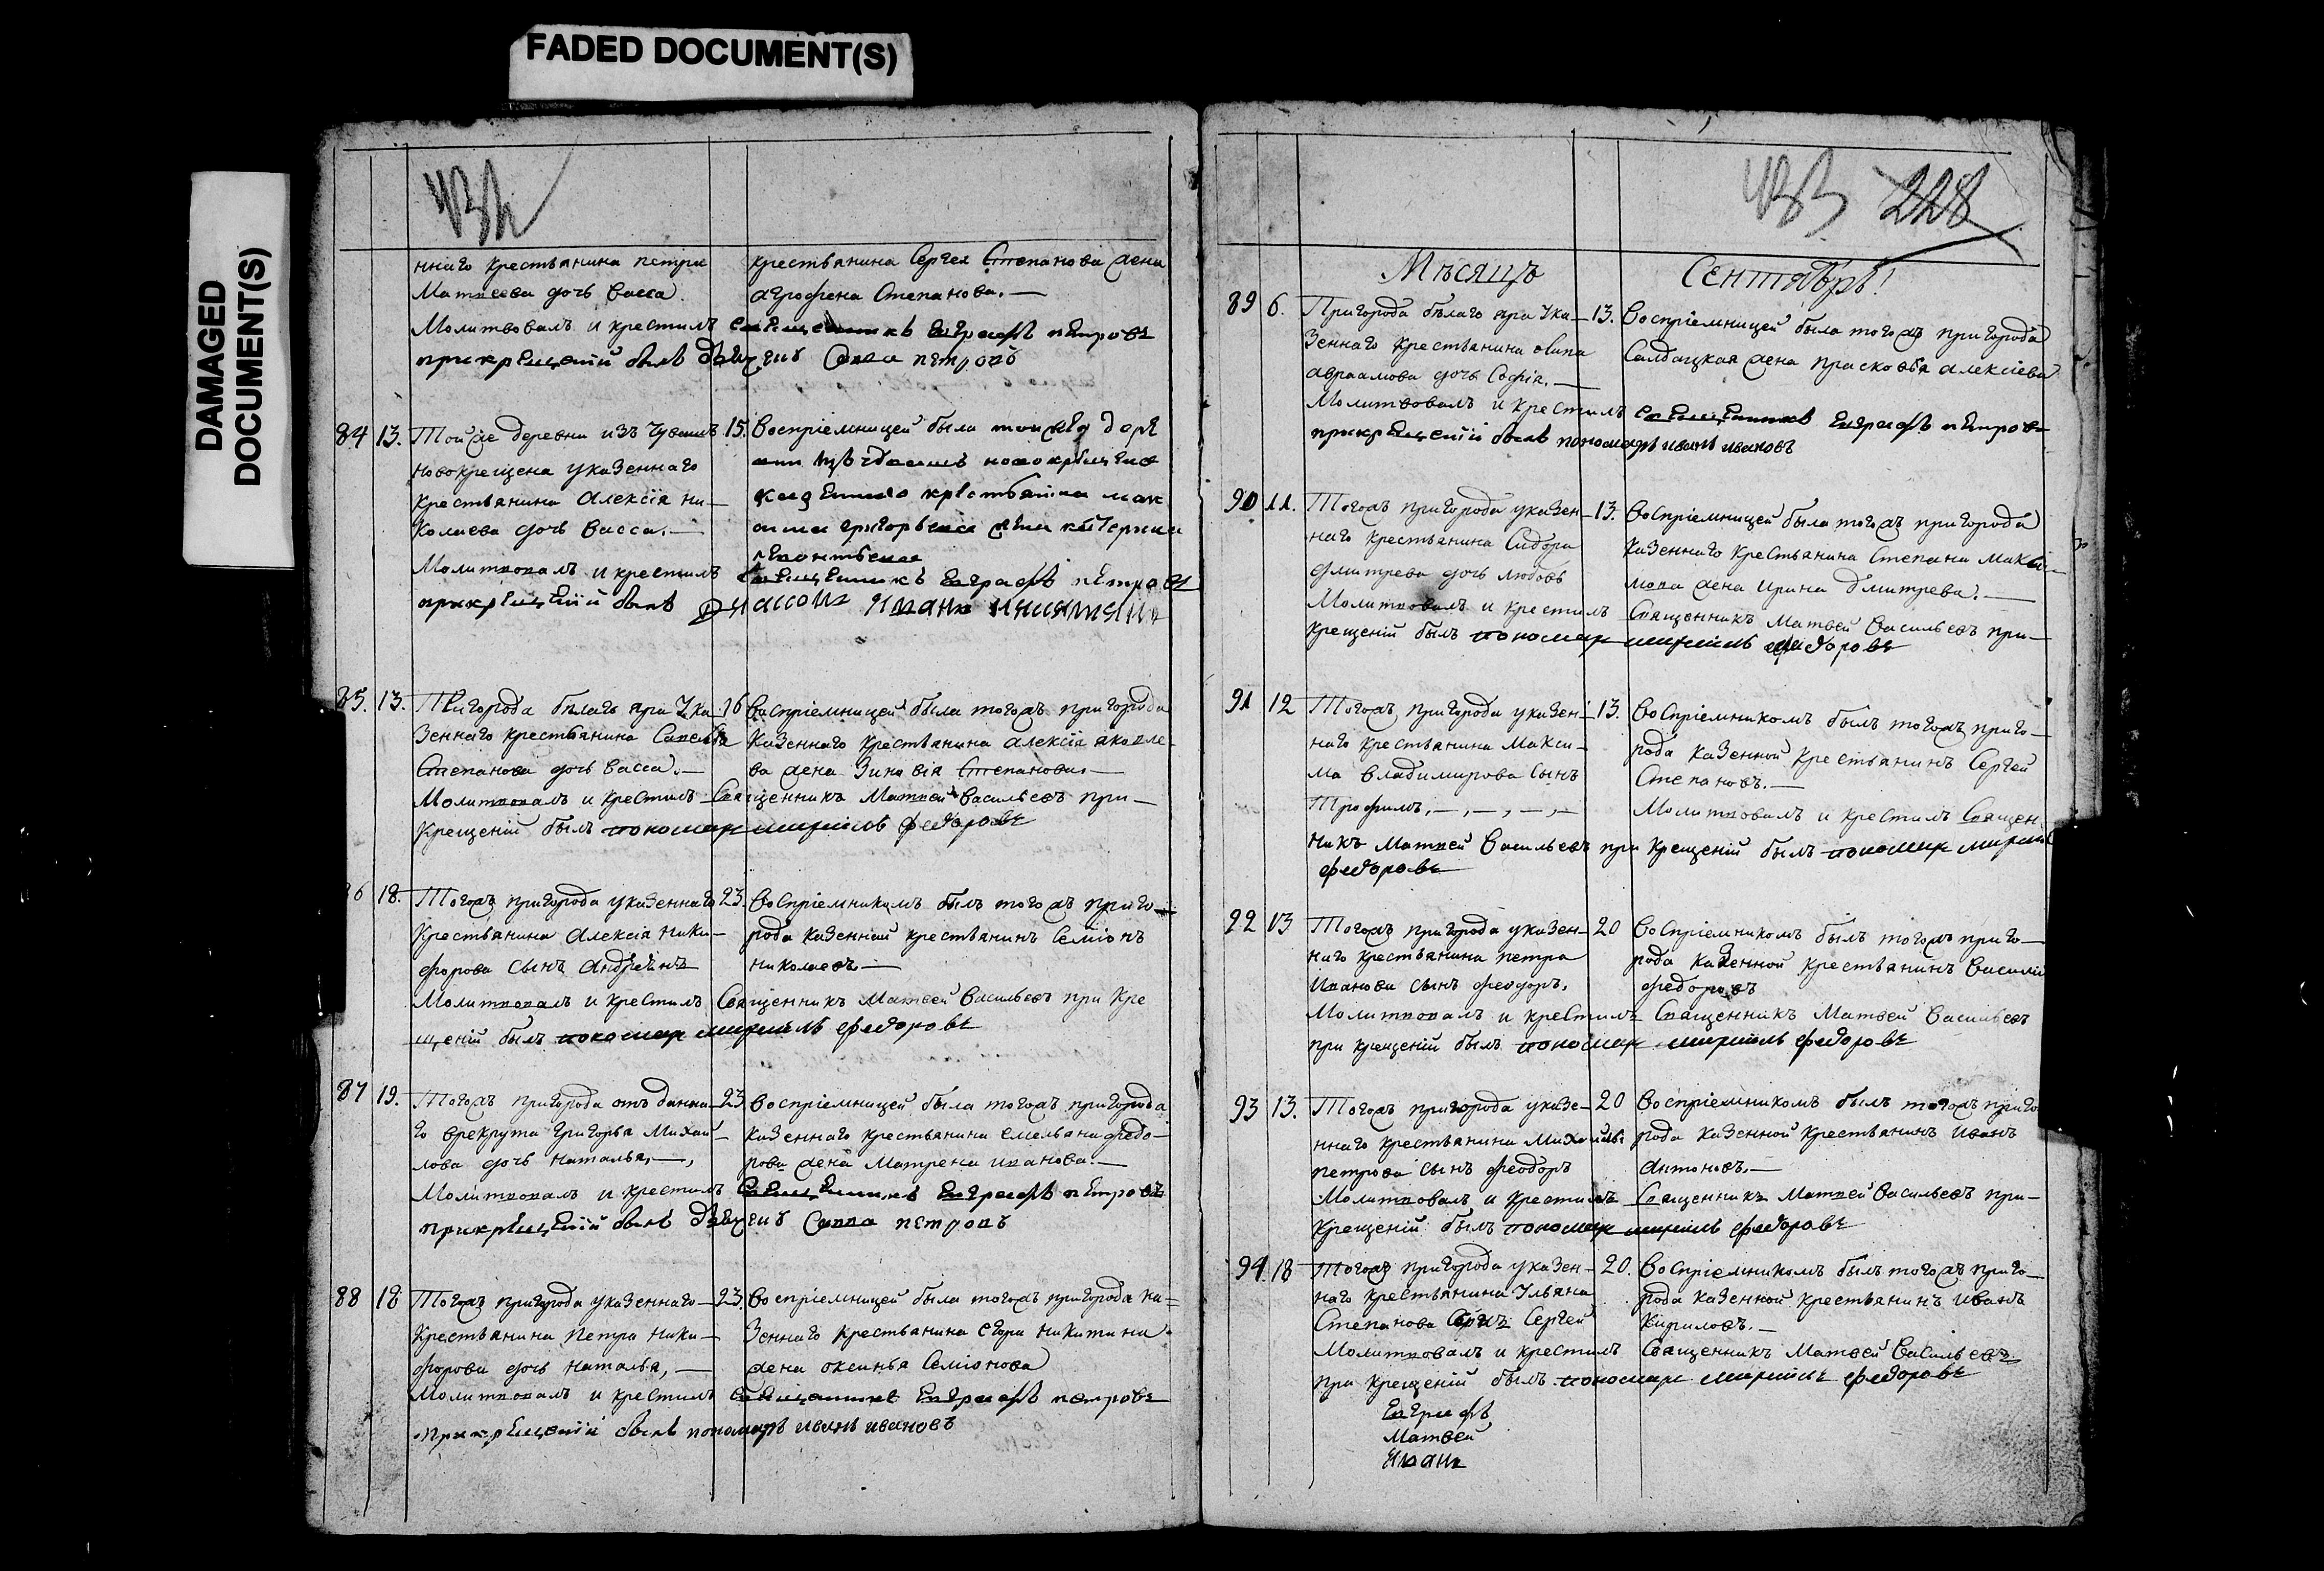 FADED DOCUMENT(S)
DAMAGED
DOCUMENT(S)
ннаго крестьянина петра
Матвеева дочь Васса.
крестьянина Сергея Степанова жена
агрофена Степанова.—
Молитвовалъ и крестилъ священникъ Евграфъ петровъ
прикрещеніи былъ дьячекъ Савва петровъ
84 13. Той же деревни изъ Чувашъ
новокрещена указеннаго
крестьянина Алексія ни—
колаева дочь Васса.—
15. Воспріемницей была тойже дере
вни изъ чювашъ новокрещена
казеннаго крестьянина мак
сима григорьева жена катерина
леонтьева
Молитвовалъ и крестилъ священникъ Евграфъ петровъ
прикрещеніи былъ
85. 13. Пригорода белаго яра Ука—
зеннаго крестьянина Савелья
Степанова дочь Васса.—
16 Воспріемницей была тогожъ пригорода
Казеннаго крестьянина алексія яковле-
ва жена Зиновія Степанова.—
Молитвовалъ и крестилъ Священникъ Матвей Васильевъ при—
крещеніи былъ пономар федоровъ
86 18. Тогожъ пригорода указеннаго
крестьянина Алексія Ники—
форова сынъ Андреянъ
23. Воспріемникомъ былъ тогожъ приго—
рода казенной крестьянинъ Семіонъ
николаевъ.—
Молитвовалъ и крестилъ Священникъ Матвей Васильевъ при Кре
щеніи былъ пономар федоровъ
87 19. Тогожъ пригорода отъданна—
го врекруты Григорья Михай—
лова дочь Наталья,—,
23 Воспріемницей была тогожъ пригорода
казеннаго крестьянина емельяна федо—
рова жена Матрена иванова.—
Молитвовалъ и крестилъ Священникъ Евграфъ петровъ
прикрещеніи былъ дьячекъ Савва петровъ
88 18 Тогожъ пригорода указеннаго—
крестьянина Петра Ники—
форова дочь Наталья,—
23. Воспріемницей была тогожъ пригорода ка=
зеннаго крестьянина егора никитина
жена оксинья Семіонова
Молитвовалъ и крестилъ священникъ Евграфъ петровъ
прикрещеніи былъ пономарь иванъ ивановъ
228
Мѣсяцъ Сентябрь!
89 6. Пригорода бѣлаго яра Ука—
зеннаго крестьянина
авраамова дочь Софія.—
13. Воспріемницей была тогожъ пригорода
Салдацкая жена прасковья алексіева
Молитвовалъ и крестилъ священникъ Евграфъ петровъ
прикрещеніи былъ пономарь иванъ ивановъ
90 11. Тогожъ пригорода указен—
наго крестьянина Сидора
дмитрева дочь любовь
13. Воспріемницей была тогожъ пригорода
казеннаго крестьянина Степана Макси—
мова жена ирина дмитрева.—
Молитвовалъ и крестилъ Священникъ Матвей Васильевъ при—
крещеніи былъ пономар федоровъ
91 12 Тогожъ пригорода указен—
наго крестьянина Макси—
ма владимирова сынъ
Трофимъ,—,—,—,—
13. Воспріемникомъ былъ тогожъ приго—
рода казенной крестьянинъ Сергей
Степановъ.—
Молитвовалъ и крестилъ Священ
никъ Матвей Васильевъ при крещеніи былъ пономар
федоровъ
92 13 Тогожъ пригорода указен—
наго крестьянина петра
Иванова сынъ феодоръ,
20 Воспріемникомъ былъ тогожъ приго—
рода казенной крестьянинъ Василий
федоровъ
Молитвовалъ и крестилъ Священникъ Матвей Васильевъ
при крещеніи былъ пономар федоровъ
93 13. Тогожъ пригорода указе—
ннаго крестьянина Михайлы
петрова сынъ феодоръ
20 Воспріемникомъ былъ тогожъ приго
рода казенной крестьянинъ Иванъ
Антоновъ.—
Молитвовалъ и крестилъ Священникъ Матвей Васильевъ при—
крещеніи былъ пономар федоровъ
94 18 Тогожъ пригорода указен—
наго крестьянина Ульяна
Степанова Сынъ Сергей
20. Воспріемникомъ былъ тогожъ приго—
рода казенной крестьянинъ Иванъ
Кириловъ.—
Молитвовалъ и крестилъ Священникъ Матвей Васильевъ
при крещеніи былъ пономар федоровъ
Евграфъ
Матвей
Иванъ